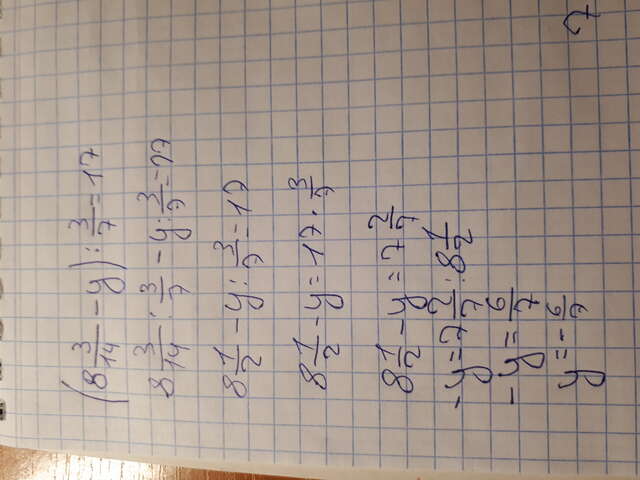 (8 3/14 - y) : 3/7 = 17
8 3/14 : 3/7 - y : 3/7 = 17
8 1/2 - y : 3/7 = 17
8 1/2 - y = 17 · 3/7
8 1/2 - y = 7 2/7
-y = 7 2/7 : 8 1/2
-y = 6/7
y = - 6/7
7